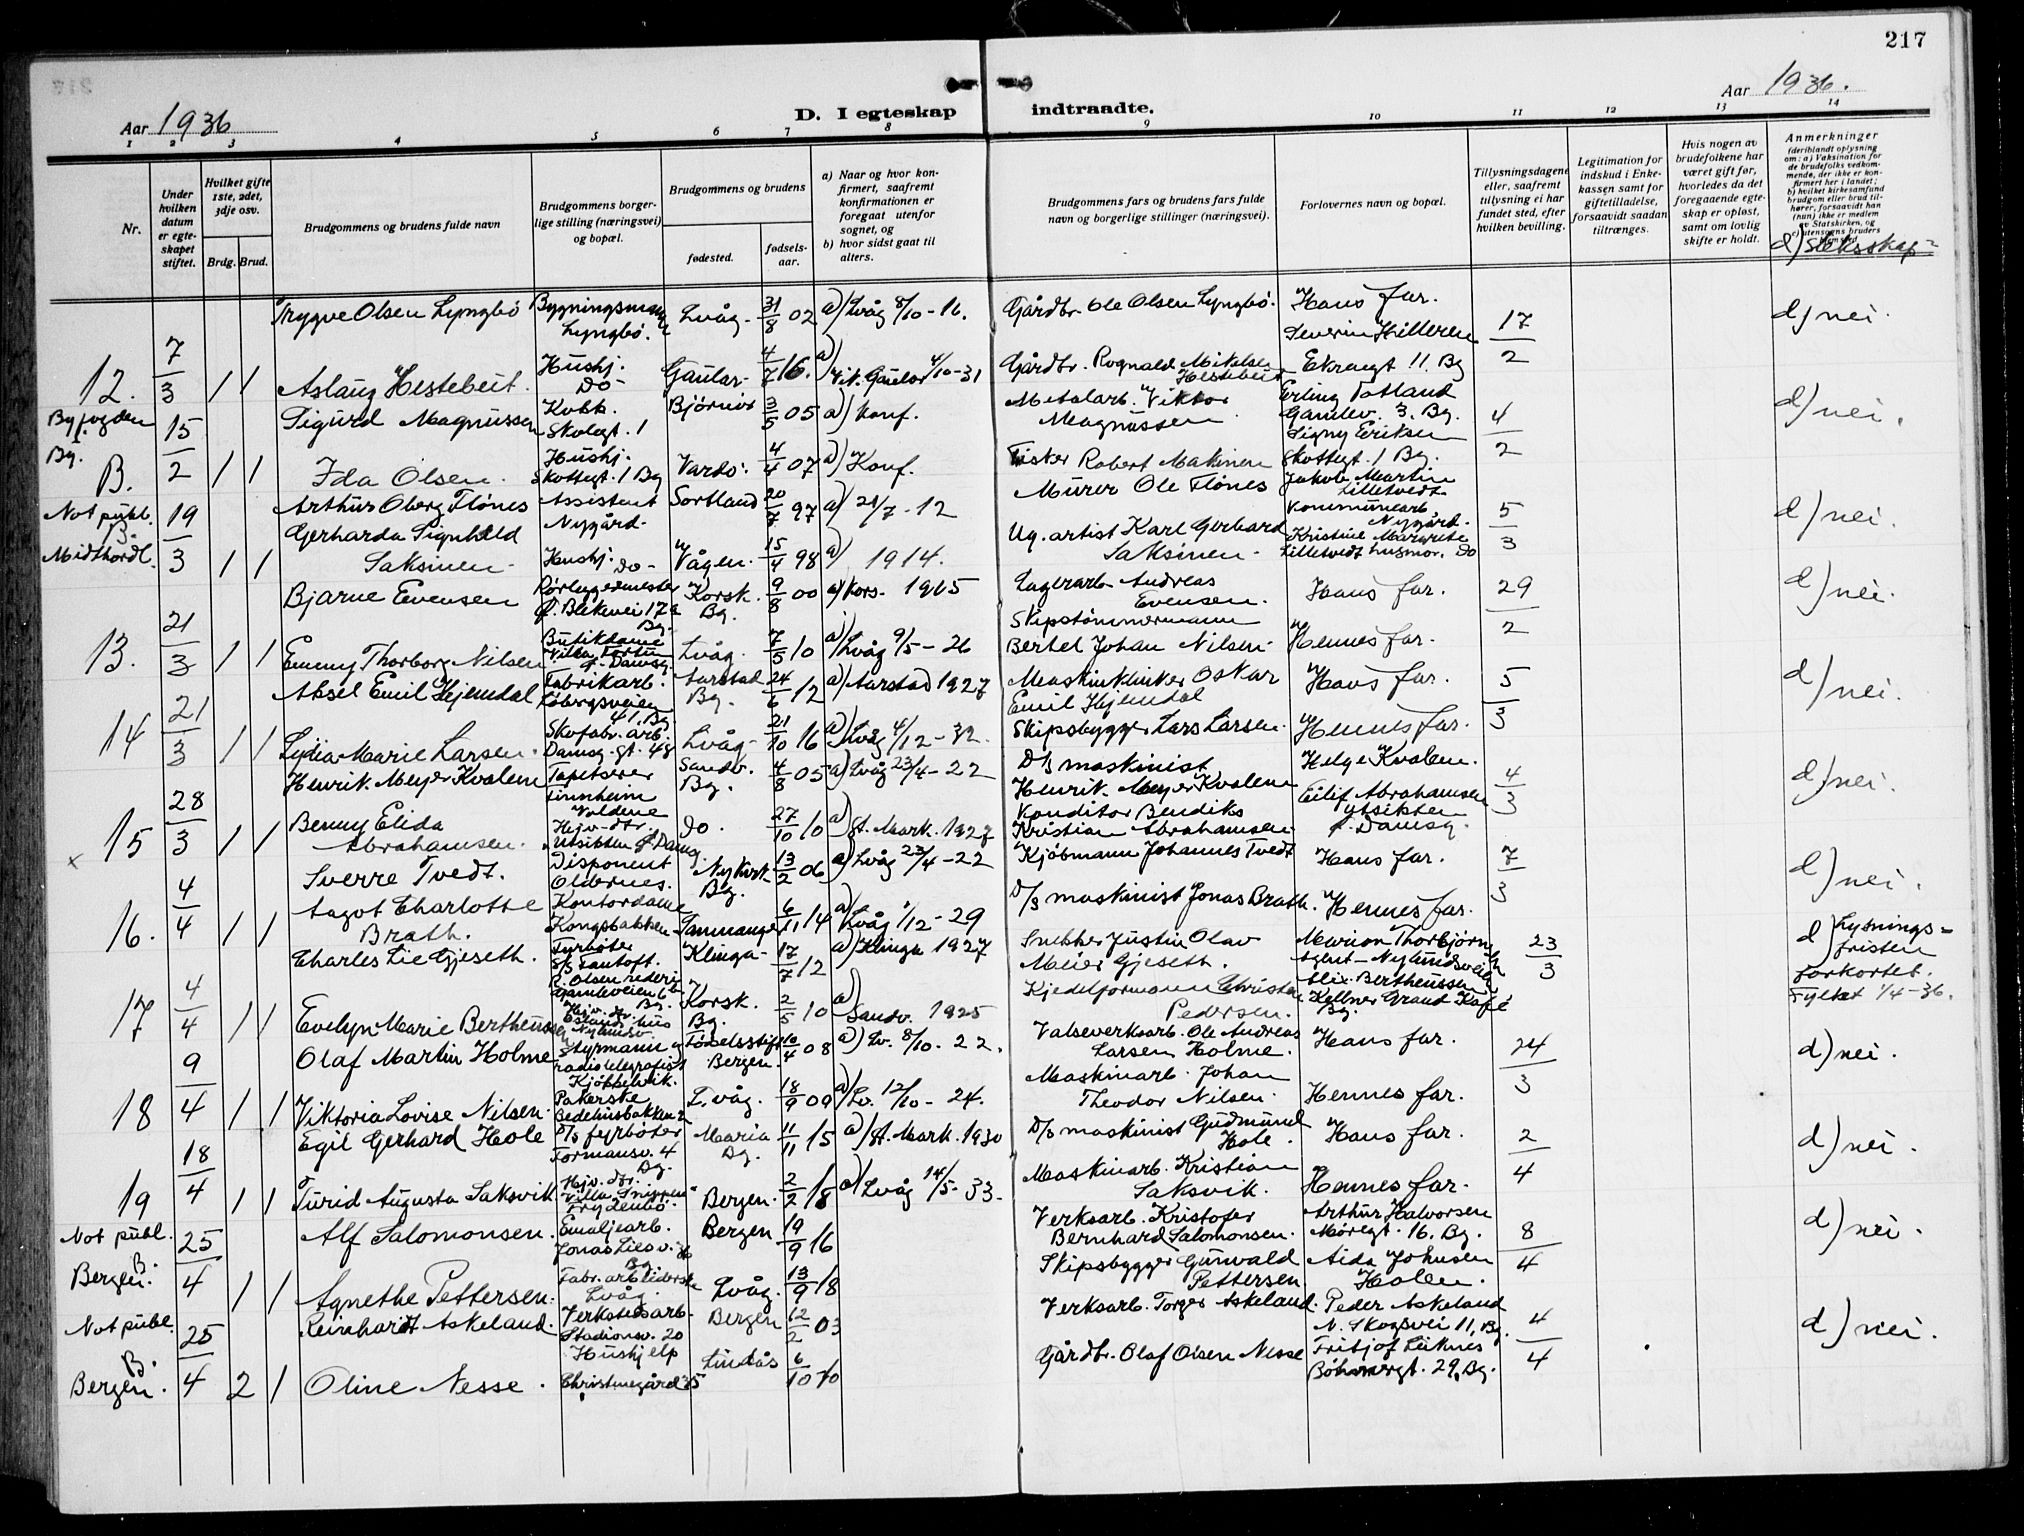 217
Aar 1936
D. I egteskap indtraadte.
Aar 1936.
1 2 3 4 5 6 7 8 9 10 11 12 13 14
Nr.
Under hvilken datum er egteskapet stiftet.
Hvilket gifte 1ste, 2det, 3dje osv.
Brdg. Brud.
Brudgommens og brudens fulde navn
Brudgommens borgerlige stilling (næringsvei) og bopæl.
Brudgommens og brudens
fødested.
fødselsaar.
a) Naar og hvor konfirmert, saafremt konfirmationen er foregaat utenfor sognet, og
b) hvor sidst gaat til alters.
Brudgommens fars og brudens fars fulde navn og borgerlige stillinger (næringsvei).
Forlovernes navn og bopæl.
Tillysningsdagene eller, saafremt tillysning ei har fundet sted, efter hvilken bevilling.
Legitimation for indskud i Enkekassen samt for giftetilladelse, forsaavidt saadan tiltrænges.
Hvis nogen av brudefolkene har været gift før, hvorledes da det foregaaende egteskap er opløst, samt om lovlig skifte er holdt.
Anmerkninger
d) Slektskap
Trygve Olsen Lyngbø Bygningsmann Lyngbø. Lvåg. 31/8 02 a) Lvåg 8/10-16. Gårdbr. Ole Olsen Lyngbø. Hans far. Severin Hilleren 17/2 d) nei.
12. 7/3 1 1 Aslaug Hestebeit. Hushj. Do- Gaular 4/7 16. a) Vik. Gaular 4/10-31 Gårdbr. Rognald Mikelsen Hestebeit Ekregt 11 Bg
Byfogden i Bg. 15/2 Sigurd Magnussen Kokk. Skolegt. 1 Bjørnør 3/5 05 a) Konf. Metalarb. Viktor Magnussen Erling Totland Gamlev. 3. Bg. 4/2 d) nei.
B. 1 1 Ida Olsen. Hushj. Skottegt. 1 Bg Vardø. 4/4 07 a) Konf. Fisker Robert Makinen Signy Eriksen Skottegt. 1 Bg.
Not publ. B. Midthordl. 19/3 1 1 Arthur Oberg Flönes Assistent Nygård. Sortland 20/7 97 a) 21/7-12 Murer Ole Flönes Jakob Martin Lilletvedt Kommunearb. Nygård. 5/3 d) nei.
Gerharda Signhild Saksinen Hushj. Do- Vågen. 15/4 98 a) 1914. Ug. artist Karl Gerhard Saksinen Kristine Margrete Lilletvedt husmor. Do
Bjarne Evensen Rørleggermester f. Blekevei 17a Bg. Korsk. Bg. 9/8 00 a) Kors. 1915 Lagerarb. Andreas Evensen. Hans far. 29/2 d) nei.
13. 21/3 1 1 Emmy Thorborg Nilsen Butikdame Villa Fortun f. Damsg. Lvåg. 7/5 10 a) Lvåg 9/5-26 Skipstømmermann Bertel Johan Nilsen. Hennes far.
Aksel Emil Hjemdal Fabrikarb. Løbergsveien 41. Bg. Aarstad Bg. 24/6 12 a) Aarstad 1927 Maskinklinker Oskar Emil Hjemdal Hans far. 5/3 d) nei.
14 21/3 1 1 Lydia Marie Larsen. Skofabr. arb. Damsg. gt. 48 Lvåg. 21/10 16 a) Lvåg 4/12-32. Skipsbygger Lars Larsen. Hennes far.
Henrik Meyer Kvalem Tapetserer Finnheim Sandv. Bg. 4/8 05 a) Lvåg 23/4-22 D/s maskinist Henrik Meyer Kvalem Helge Kvalem. 4/3 d) nei.
x 15 28/3 1 1 Benny Elida Abrahamsen. Hejv. dtr. Utsikten f. Damsg. do. 27/10 10 a) St. Mark. 1927 Konditor Bendiks Kristian Abrahamsen. Eilif Abrahamsen Utsikten f. Damsg.
Sverre Tvedt. Disponent Oldernes. Nykirk. Bg. 13/2 06 a) Lvåg 23/4-22 Kjøbmann Johannes Tvedt Hans far. 7/3 d) nei.
16. 4/4 1 1 Aagot Charlotte Brath. Kontordame Kongsbakken Tanmanger 6/11 14 a) Lvåg 1/12-29 D/s maskinist Jonas Brath. Hennes far.
Charles Lie Gjeseth. Fyrbøter S/s Fantoft. Klinga 17/7 12 a) Klinga 1927 Snekker Justin Olav Meier Gjeseth. Marion Thorbjørn Agent Nylundsveien 23/3 d) Lysningsfristen forkortet. Fylket 1/4-36.
17 4/4 1 1 Evelyn Marie Bertheussen Korsk. Bg. 2/5 10 a) Sandv. 1925 Kjedelformann Christen Pedersen. Kellner Grand Kafé Bg.
Olaf Martin Holme Styrmann og radiotelegrafist Kjøkkelvik. Fødselsstift. Bergen. 10/4 08 a) Lv. 8/10. 22. Valseverksarb. Ole Andreas Larsen Holme. Hans far. 24/3 d) nei.
18 9/4 1 1 Viktoria Lovise Nilsen. Pakerske Bedehusbakken 2 L. våg. 18/9 09 a) Lv. 12/10-24. Maskinarb. Johan Theodor Nilsen. Hennes far.
Egil Gerhard Hole D/s fyrbøter Formansv. 4 Bg. Maria Bg. 11/11 15 a) St. Mark. 1930 D/s maskinist Gudmund Hole. Hans far. 2/4 d) nei.
19 18/4 1 1 Turid Augusta Saksvik Hejv. dtr. Villa Snippen Frydenbø. Bergen. 2/2 18 a) Lvåg 14/5-33. Maskinarb. Kristian Saksvik. Hennes far.
Not publ. B. Bergen. 25/4 1 1 Alf Salomonsen. Emaljearb. Jonas Lies v. Bg. Bergen 19/9 16 Verksarb. Kristofer Bernhard Salomonsen. Arthur Halvorsen Møregt. 16. Bg. 8/4 d) nei.
Agnethe Pettersen. Fabr. arbeiderske Lvåg. Lvåg. 13/9 18 Skipsbygger Gunvald Pettersen Aida Johnsen Holen.
Not publ. B. Bergen. 25/4 2 1 Reinhardt Askeland. Verkstedsarb. Stadionv. 20 Bergen 12/2 03 Verksarb. Torger Askeland. Peder Askeland N. Skogsvei 11. Bg. 4/4 d) nei.
Oline Nesse. Hushjelp Christinegård 35 Lindås 6/10 10 Gårdbr. Olaf Olsen Nesse Fritjof Leiknes Bøhmergt. 29. Bg.